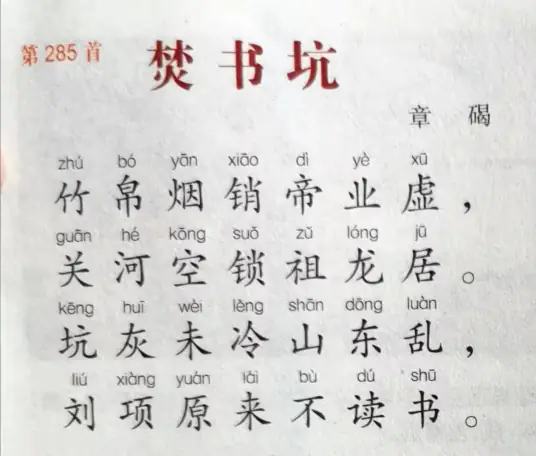 第285首
焚书坑
章 碣
zhú bó yān xiāo dì yè xū
竹帛烟销帝业虚，
guān hé kōng suǒ zǔ lóng jū
关河空锁祖龙居。
kēng huī wèi lěng shān dōng luàn
坑灰未冷山东乱，
liú xiàng yuán lái bù dú shū
刘项原来不读书。